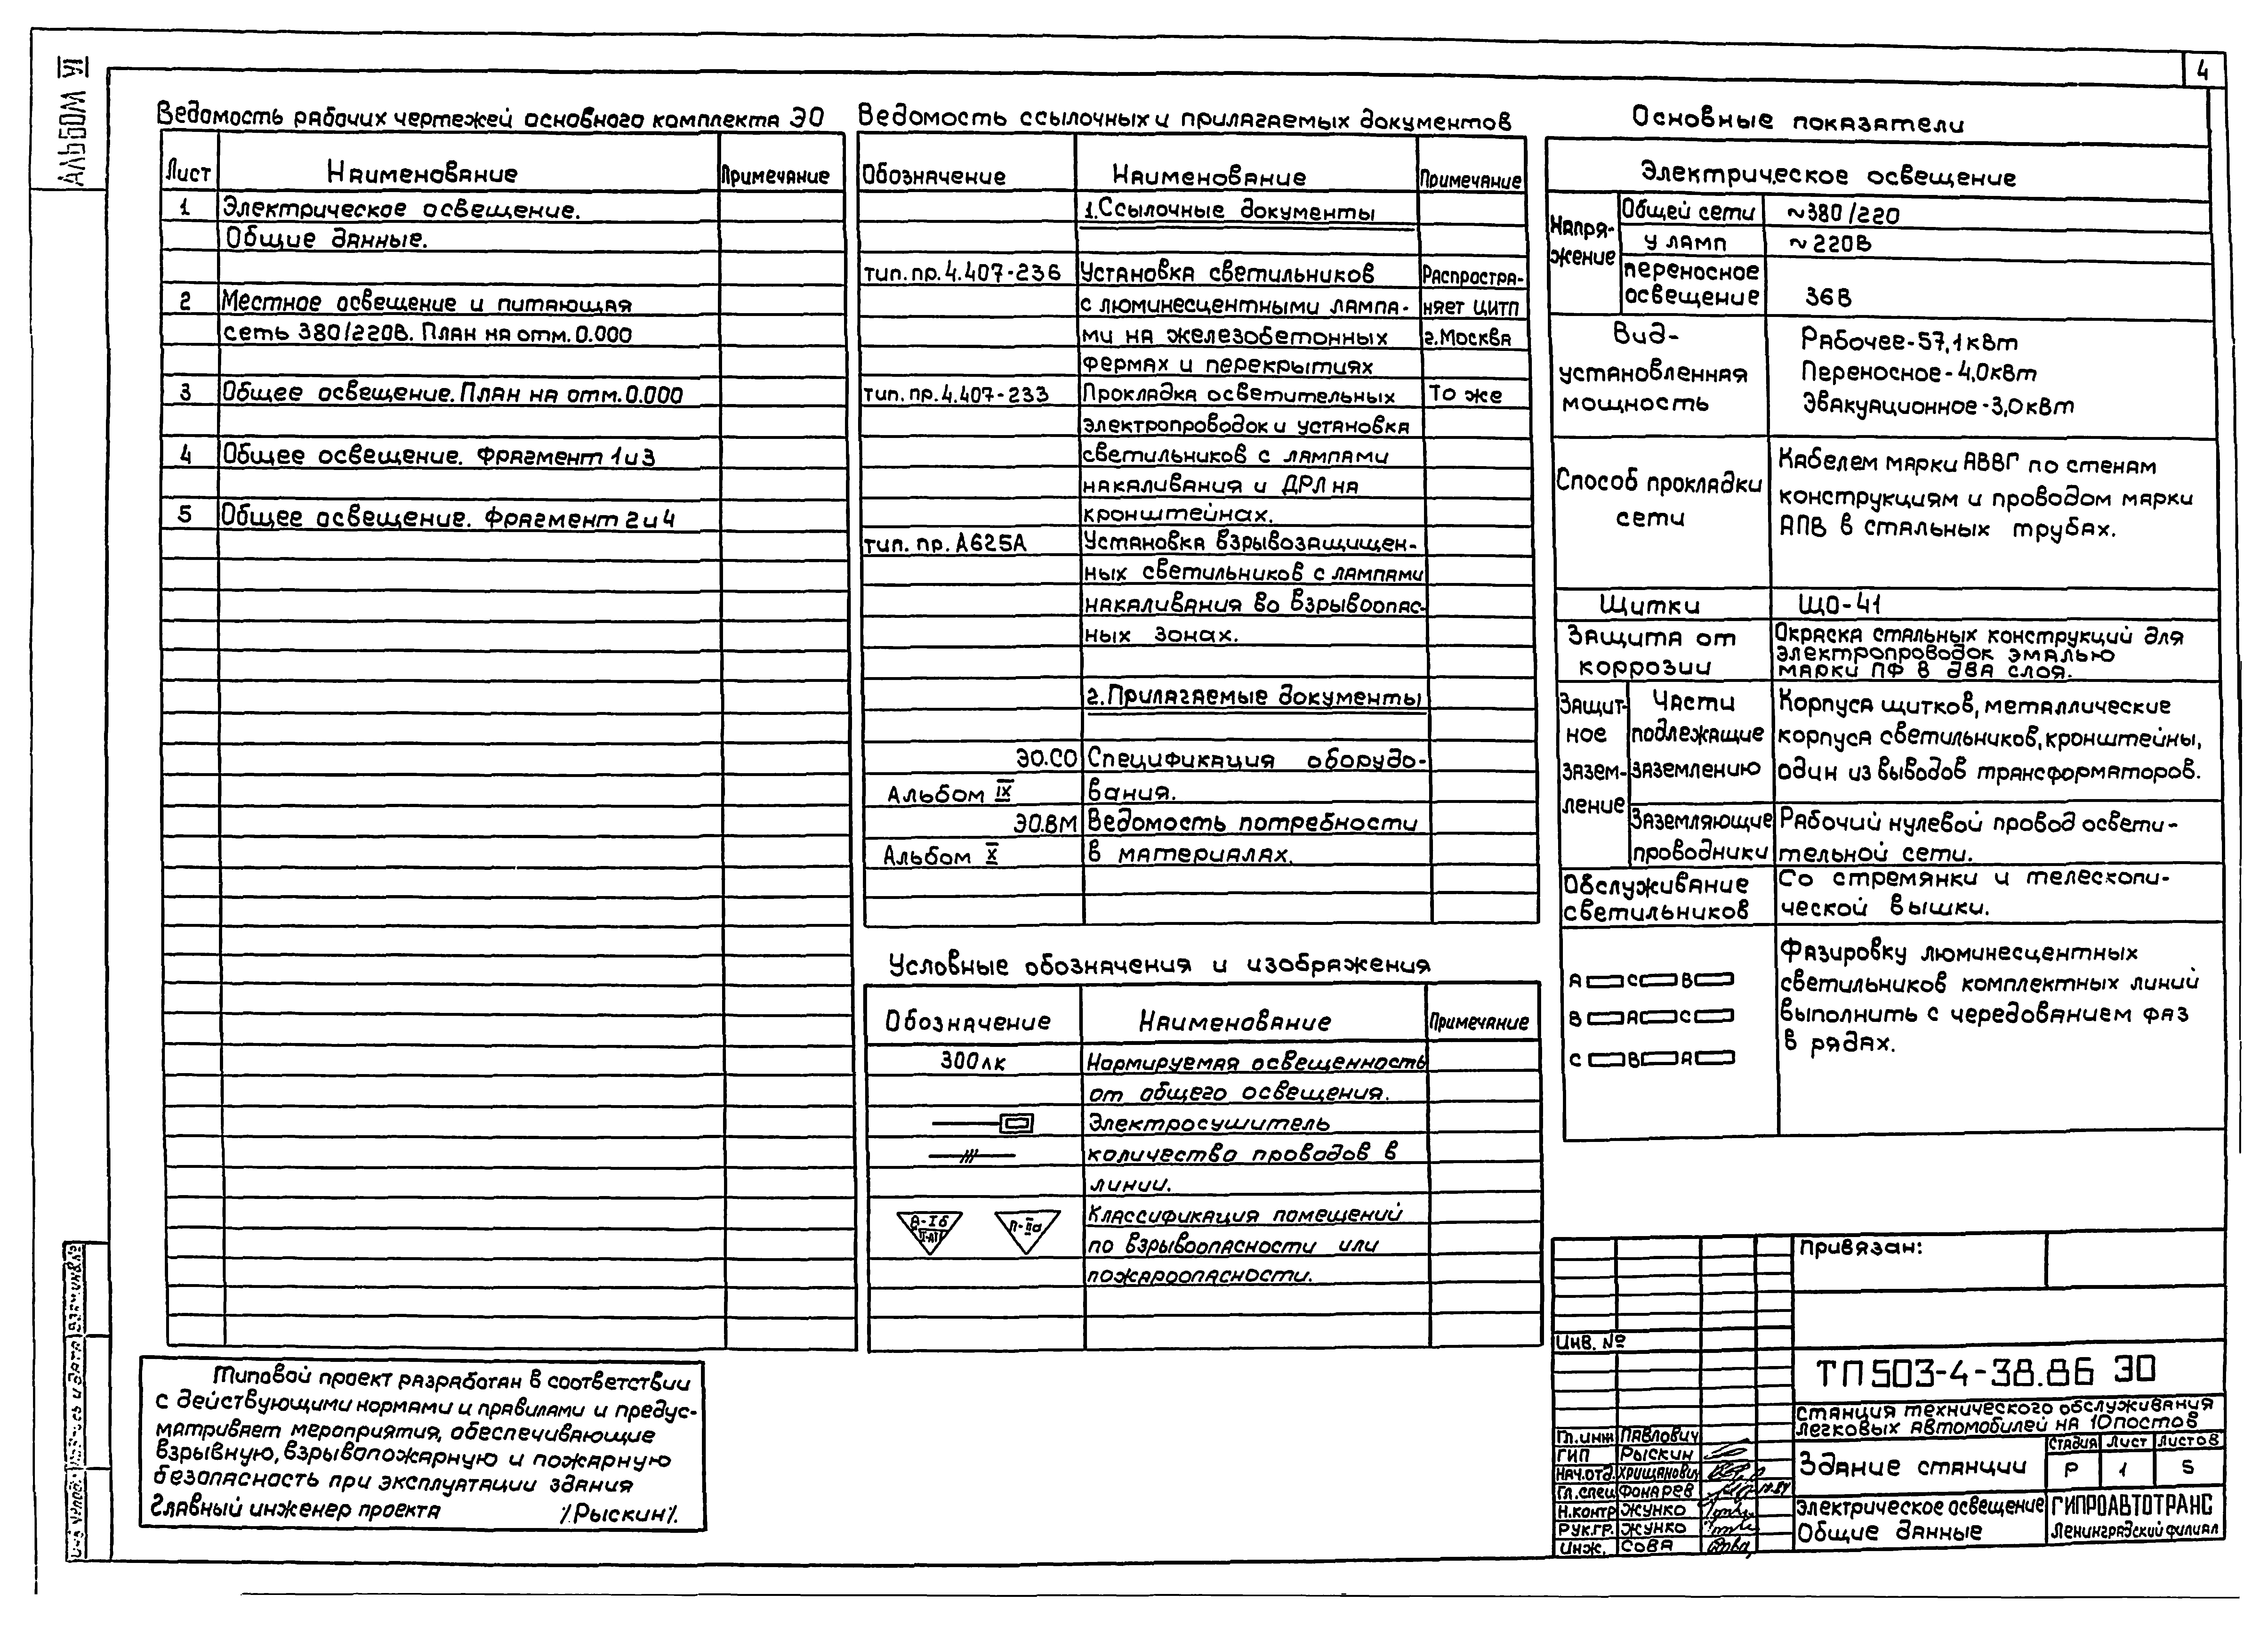 Альбом VI
4
Ведомость рабочих чертежей основного комплекта ЭО
Лист Наименование Примечание
1 Электрическое освещение.
Общие данные.
2 Местное освещение и питающая
сеть 380/220В. План на отм. 0.000
3 Общее освещение. План на отм. 0.000
4 Общее освещение. Фрагмент 1 и 3
5 Общее освещение. Фрагмент 2 и 4
Типовой проект разработан в соответствии
с действующими нормами и правилами и предус-
матривает мероприятия, обеспечивающие
взрывную, взрывопожарную и пожарную
безопасность при эксплуатации здания
Главный инженер проекта /Рыскин/.
Ведомость ссылочных и прилагаемых документов
Обозначение Наименование Примечание
1. Ссылочные документы
тип. пр. 4.407-236 Установка светильников Распростра-
с люминесцентными лампа- няет ЦИТП
ми на железобетонных г. Москва
фермах и перекрытиях
тип. пр. 4.407-233 Прокладка осветительных То же
электропроводок и установка
светильников с лампами
накаливания и ДРЛ на
кронштейнах.
тип. пр. А625А Установка взрывозащищен-
ных светильников с лампами
накаливания во взрывоопас-
ных зонах.
2. Прилагаемые документы
ЭО.СО Спецификация оборудо-
Альбом IX вания.
ЭО.ВМ Ведомость потребности
Альбом X в материалах.
Условные обозначения и изображения
Обозначение Наименование Примечание
300 лк Нормируемая освещенность
от общего освещения.
Электросушитель
количество проводов в
линии.
В-Iб П-IIа Классификация помещений
по взрывоопасности или
пожароопасности.
Основные показатели
Электрическое освещение
Напря-
жение
Общей сети ~380/220
у ламп ~220В
переносное
освещение 36В
Вид- Рабочее-57,1кВт
установленная Переносное-4,0кВт
мощность Эвакуационное-3,0кВт
Способ прокладки
сети
Кабелем марки АВВГ по стенам
конструкциям и проводом марки
АПВ в стальных трубах.
Щитки ЩО-41
Защита от
коррозии
Окраска стальных конструкций для
электропроводок эмалью
марки ПФ в два слоя.
Защит-
ное
зазем-
ление
Части
подлежащие
заземлению
Корпуса щитков, металлические
корпуса светильников, кронштейны,
один из выводов трансформаторов.
Заземляющие
проводники
Рабочий нулевой провод освети-
тельной сети.
Обслуживание
светильников
Со стремянки и телескопи-
ческой вышки.
А С В
В А С
С В А
Фазировку люминесцентных
светильников комплектных линий
выполнить с чередованием фаз
в рядах.
Привязан:
Инв. №
ТП 503-4-38.86 ЭО
Станция технического обслуживания
легковых автомобилей на 10 постов
Гл.инж Павлович
ГИП Рыскин
Нач.отд. Хрищанович
Гл.спец Фонарев
Н.контр Жунко
Рук.гр. Жунко
Инж. Сова
Здание станции
Стадия Лист Листов
Р 1 5
Электрическое освещение
Общие данные
ГИПРОАВТОТРАНС
Ленинградский филиал